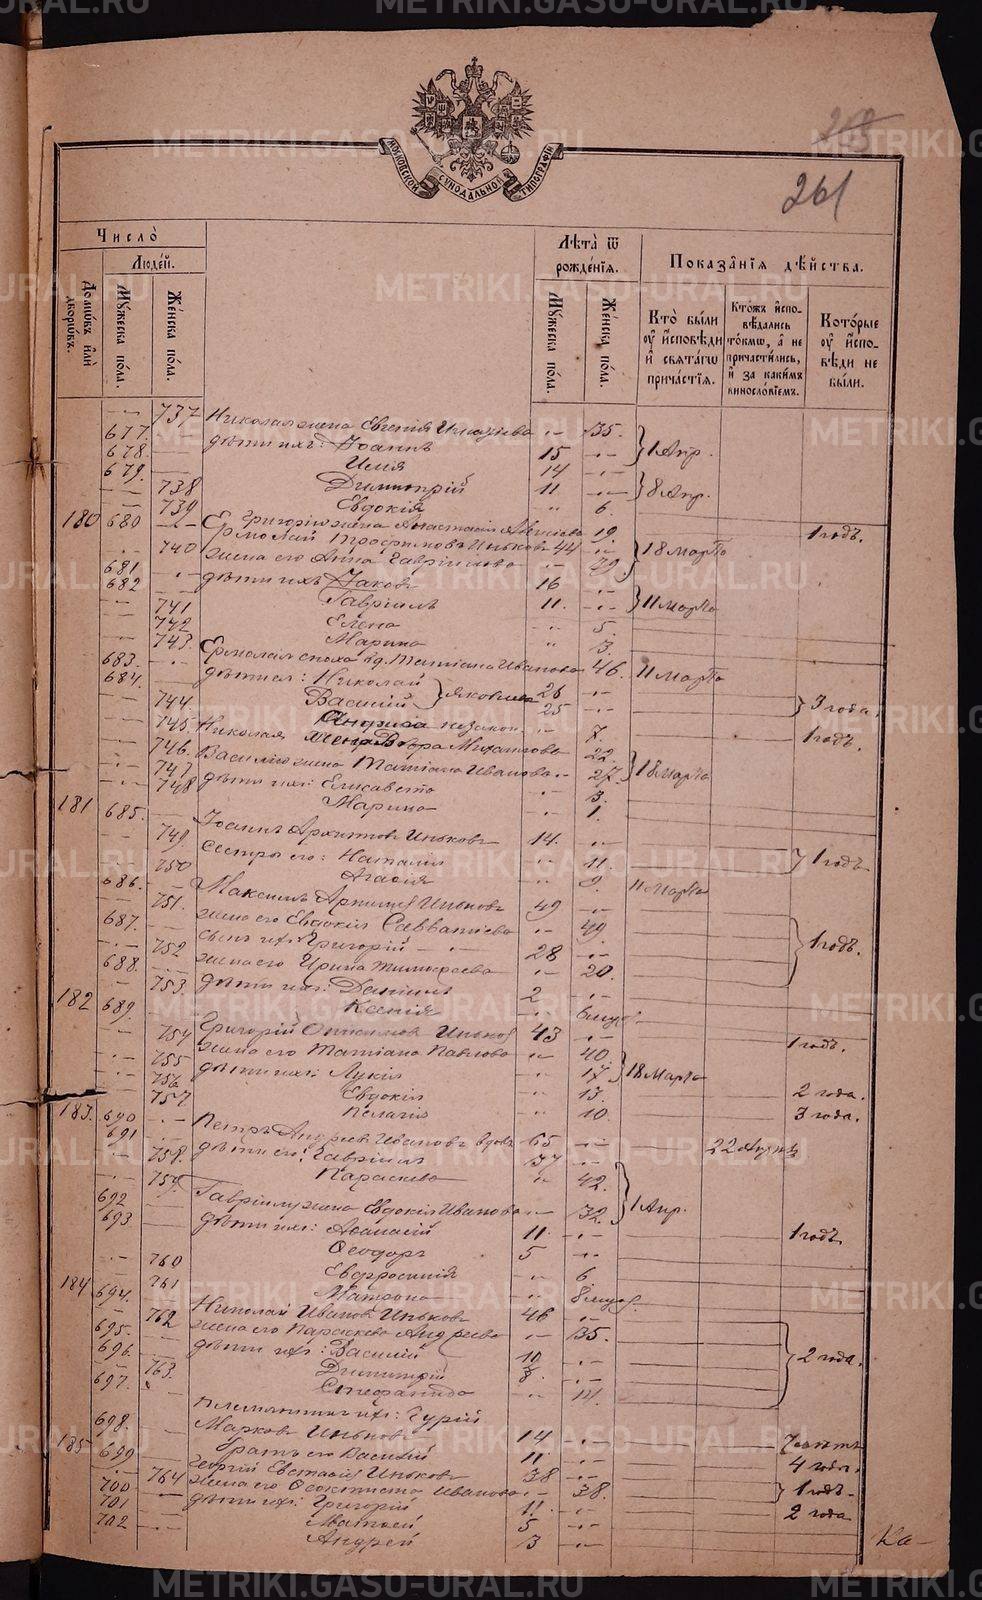 METRIKI.GASO-URAL.RU
МОСКОВСКОЙ СѴНОДАЛЬНОЙ ТИПОГРАФІИ
261
Число̀
Людей.
Домѡвъ или дворѡвъ.
Мꙋжеска пола.
Женска пола.
Лѣта ѿ рожденїѧ.
Мꙋжеска пола.
Женска пола.
Показанїѧ дѣйства.
Кто были оу исповѣди и свѧтагѡ причастїѧ.
Ктожъ исповѣдались токмѡ, а не причастились, и за какимъ винословїемъ.
Которые оу исповѣди не были.
737 Николая жена Евгенія 35.
677 дѣти ихъ: Іоаннъ 15 1 Апр.
678 Илія 14
679. Димитрій 11 8 Апр.
738 Евдокія 6
739 Григорія жена Анастасія 19. 1 годъ.
180 680 Ермолай Трофимовъ Иньковъ 44 18 Марта
740 жена его Анна Гавріилова
681 дѣти ихъ Іаковъ 16
682 Гавріилъ 11. 11 Марта
741 Елена 5
742 Марина 3.
743. Ермолая сноха вд. Татіана Иванова 46. 11 Марта
683. дѣти ея: Николай 26
684. Василій Яковлевы 25 3 года.
744. незакон. 7. 1 годъ.
745. Николая жена Михаилова 22.
746. Василія жена Татіана Иванова 27. 18 Марта
747 дѣти ихъ: Елисавета 3.
748 Марина 1.
181 685. Іоаннъ Иньковъ 14.
749. сестры его: Наталія 11. 1 годъ
750 Агафія 9. 11 Марта
686. Максимъ Иньковъ 49
751. жена его Евдокія Савватіева 49.
687. сынъ ихъ Григорій 28 1 годъ.
752 жена его Ирина Тимофеева 20.
688. дѣти ихъ: Даніилъ 2
753. Ксенія
182 689. Григорій Онисимовъ Иньковъ 43 1 годъ.
754 жена его Татіана Павлова 40.
755 дѣти ихъ: Лукія 17 18 Марта
756 Евдокія 13. 2 года.
757 Пелагія 10. 3 года.
183. 690 Петръ Андреевъ Ивановъ вдовъ 65 22
691 дѣти его: Гавріилъ 37
758. Параскева 42.
759. Гавріила жена Евдокія Иванова 32. 1 Апр.
692 дѣти ихъ: Аѳанасій 11. 1 годъ
693 Ѳеодоръ 5
760 Евфросинія 6
761 Матрона
184 694. Николай Ивановъ Иньковъ 46
762 жена его Параскева Андреева 35.
695. дѣти ихъ: Василій 10 2 года.
696. Димитрій 8.
763. Стефанида
697. племянники ихъ: Гурій
698. Марковъ Иньковъ 14
братъ его Василій 11 4 года.
185 699 Георгій Евстафіев Иньковъ 38
764 жена его Иванова 38. 1 годъ
700 дѣти ихъ: Григорій 11. 2 года
701 Матѳей 5
702 Андрей 3
Ка-